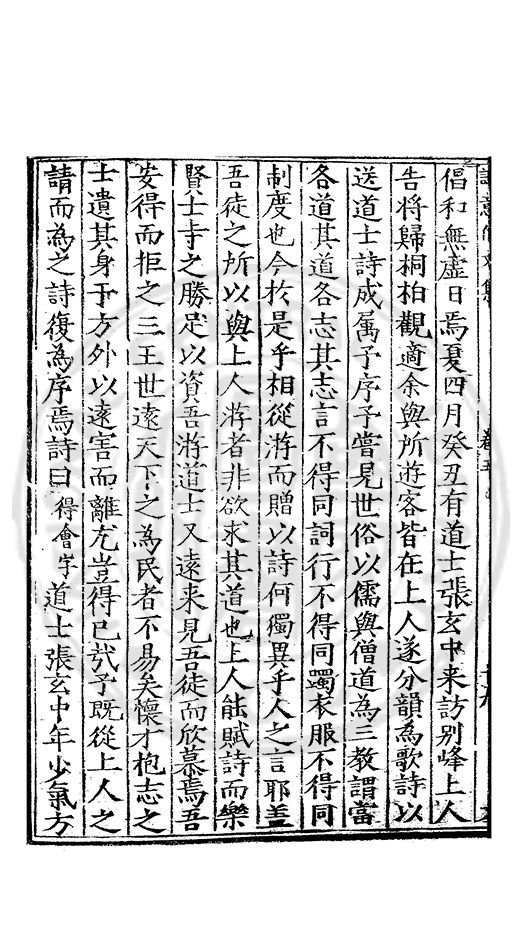 倡和無虛日焉夏四月癸丑有道士張玄中来訪别峰上人
告將歸桐柏觀適余與所遊客皆在上人遂分韻為歌詩以
送道士詩成属予序予嘗見世俗以儒與僧道為三教謂當
各道其道各志其志言不得同詞行不得同躅衣服不得同
制度也今於是乎相從游而贈以詩何獨異乎人之言耶盖
吾徒之所以與上人游者非欲求其道也上人能賦詩而樂
賢士寺之勝足以資吾游道士又遠来見吾徒而欣慕焉吾
安得而拒之三王世遠天下之為民者不易矣懷才抱志之
士遺其身于方外以遠害而離尤豈得已哉予既從上人之
請而為之詩復為序焉詩曰得會字道士張玄中年少氣方